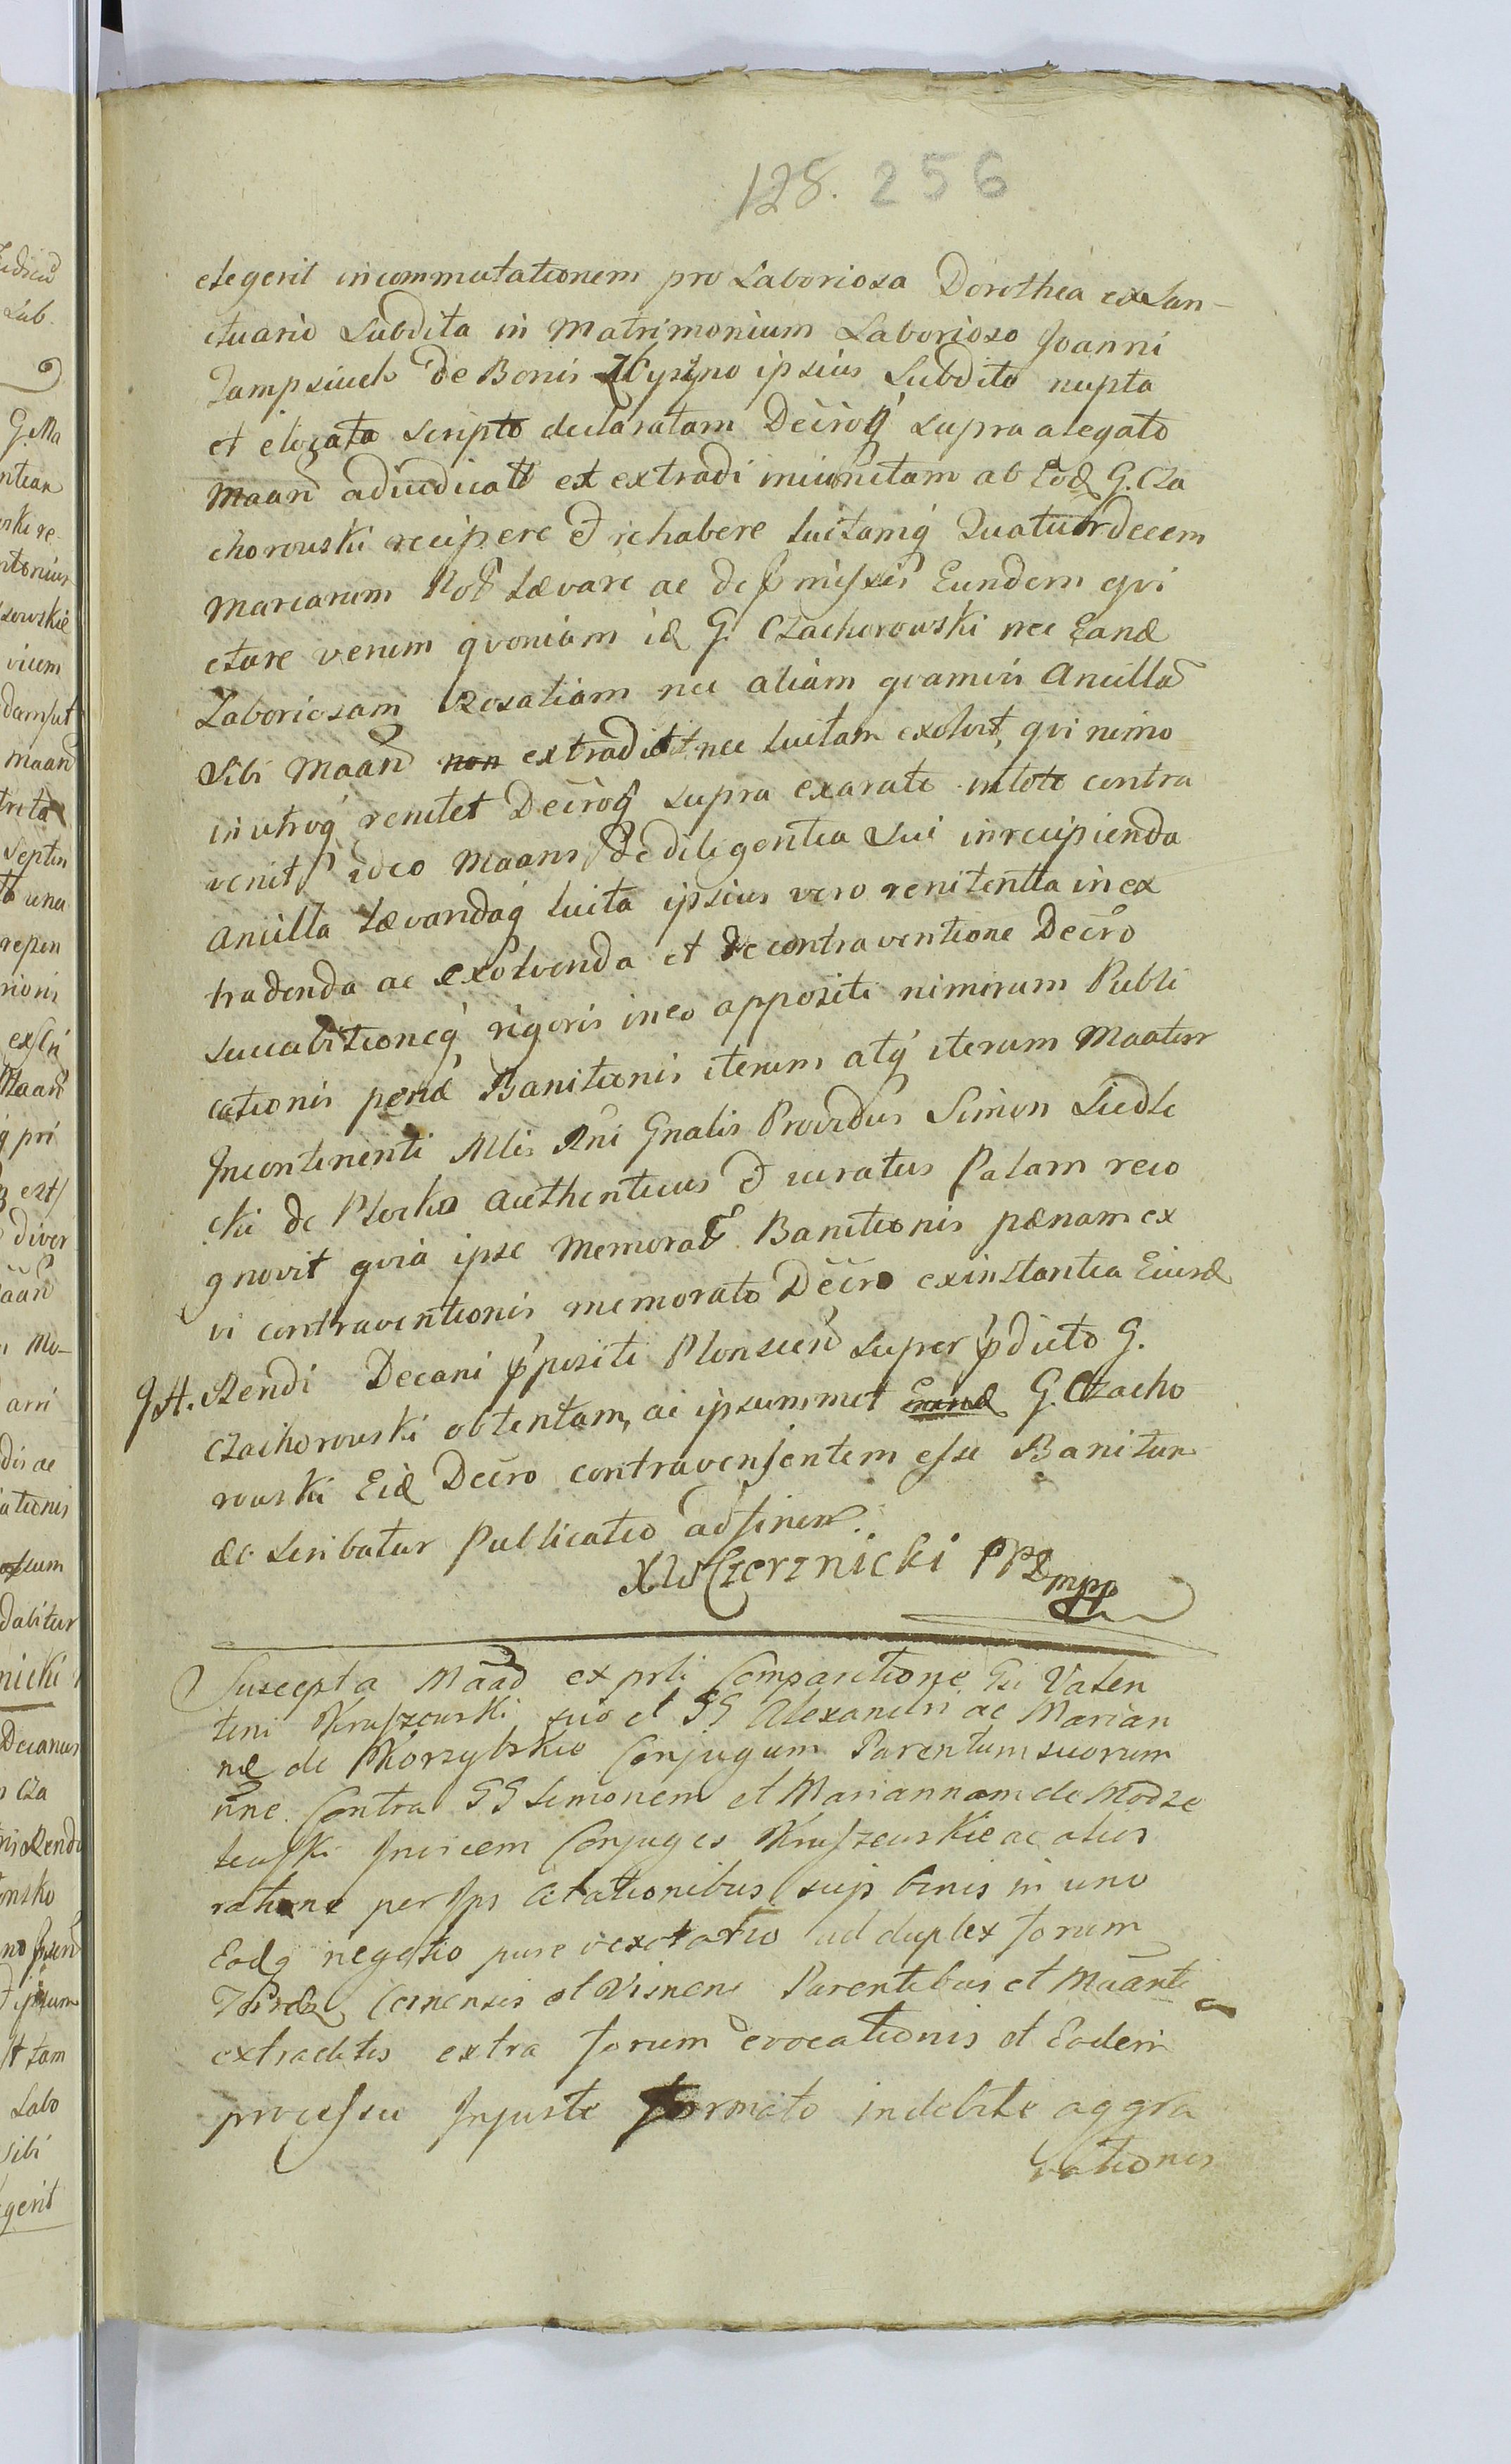 128. 256
elegerit in commutationem pro Laboriosa Dorothea ex San-
ctuario Subdita in Matrimonium Laborioso Joanni
de Bonis ipsius Subdito nupta
et elocata scripto declaratam Decroq́ supra alegato
Maan adiudicat et extradi iniunctam ab Eod G. Cza
chorowski recipere et rehabere luitamq́ Quatuordecem
Marcarum Lævare ac de pmissis Eundem qvi
etare verum qvoniam id G. Czachorowski nec Eand
Laboriosam Rosaliam nec aliam qvamvis Ancillā
Sibi Maan non extradidit nec luitam exolvit, qvi nimo
in utroq́ renitet Decroq́ supra exarato in toto contra
venit ideo Maans de diligentia Sui in recipienda
Ancilla Lævandaq́ luita ipsius vero renitentia in ex
tradenda ac exolvenda et de contraventione Decro
succubitioneq́ rigoris in eo appositi nimirum Publi
cationis penæ Banitionis iterum atq́ iterum Maatur
Incontinenti Mlis Rni Gnalis Providus Simon Siedle
cki de Plocko Authenticus et iuratus Palam reco
gnovit qvia ipse Memorat Banitionis pænam ex
vi contraventionis memorato Decro ex instantia Eiusd
Rendi Decani ppositi Plonscen super pdicto G.
Czachorowski obtentam, ac ipsummet G. Czacho
rowski Eid Decro contravenientem esse Banitum
de scribatur Publicatio ad finem.
Czerznicki PPS mpp
Suscepta Maad ex prli Comparitione Gsi Valen
tini Kruszewski suo et GG Alexandri ac Marian
næ de Korzybskie Conjugum Parentum suorum
nne Contra GG Simonem et Mariannam de Modze
lewski Invicem Conjuges Kruszewskie ac alios
ratione per Ips Citationibus sup binis in uno
Eodq negotio pure vexatorio ad duplex forum
et Visnens Parentibus et Maanti
extraditis extra forum evocationis et Eodem
processu Injuste formato indebite aggra
vationis